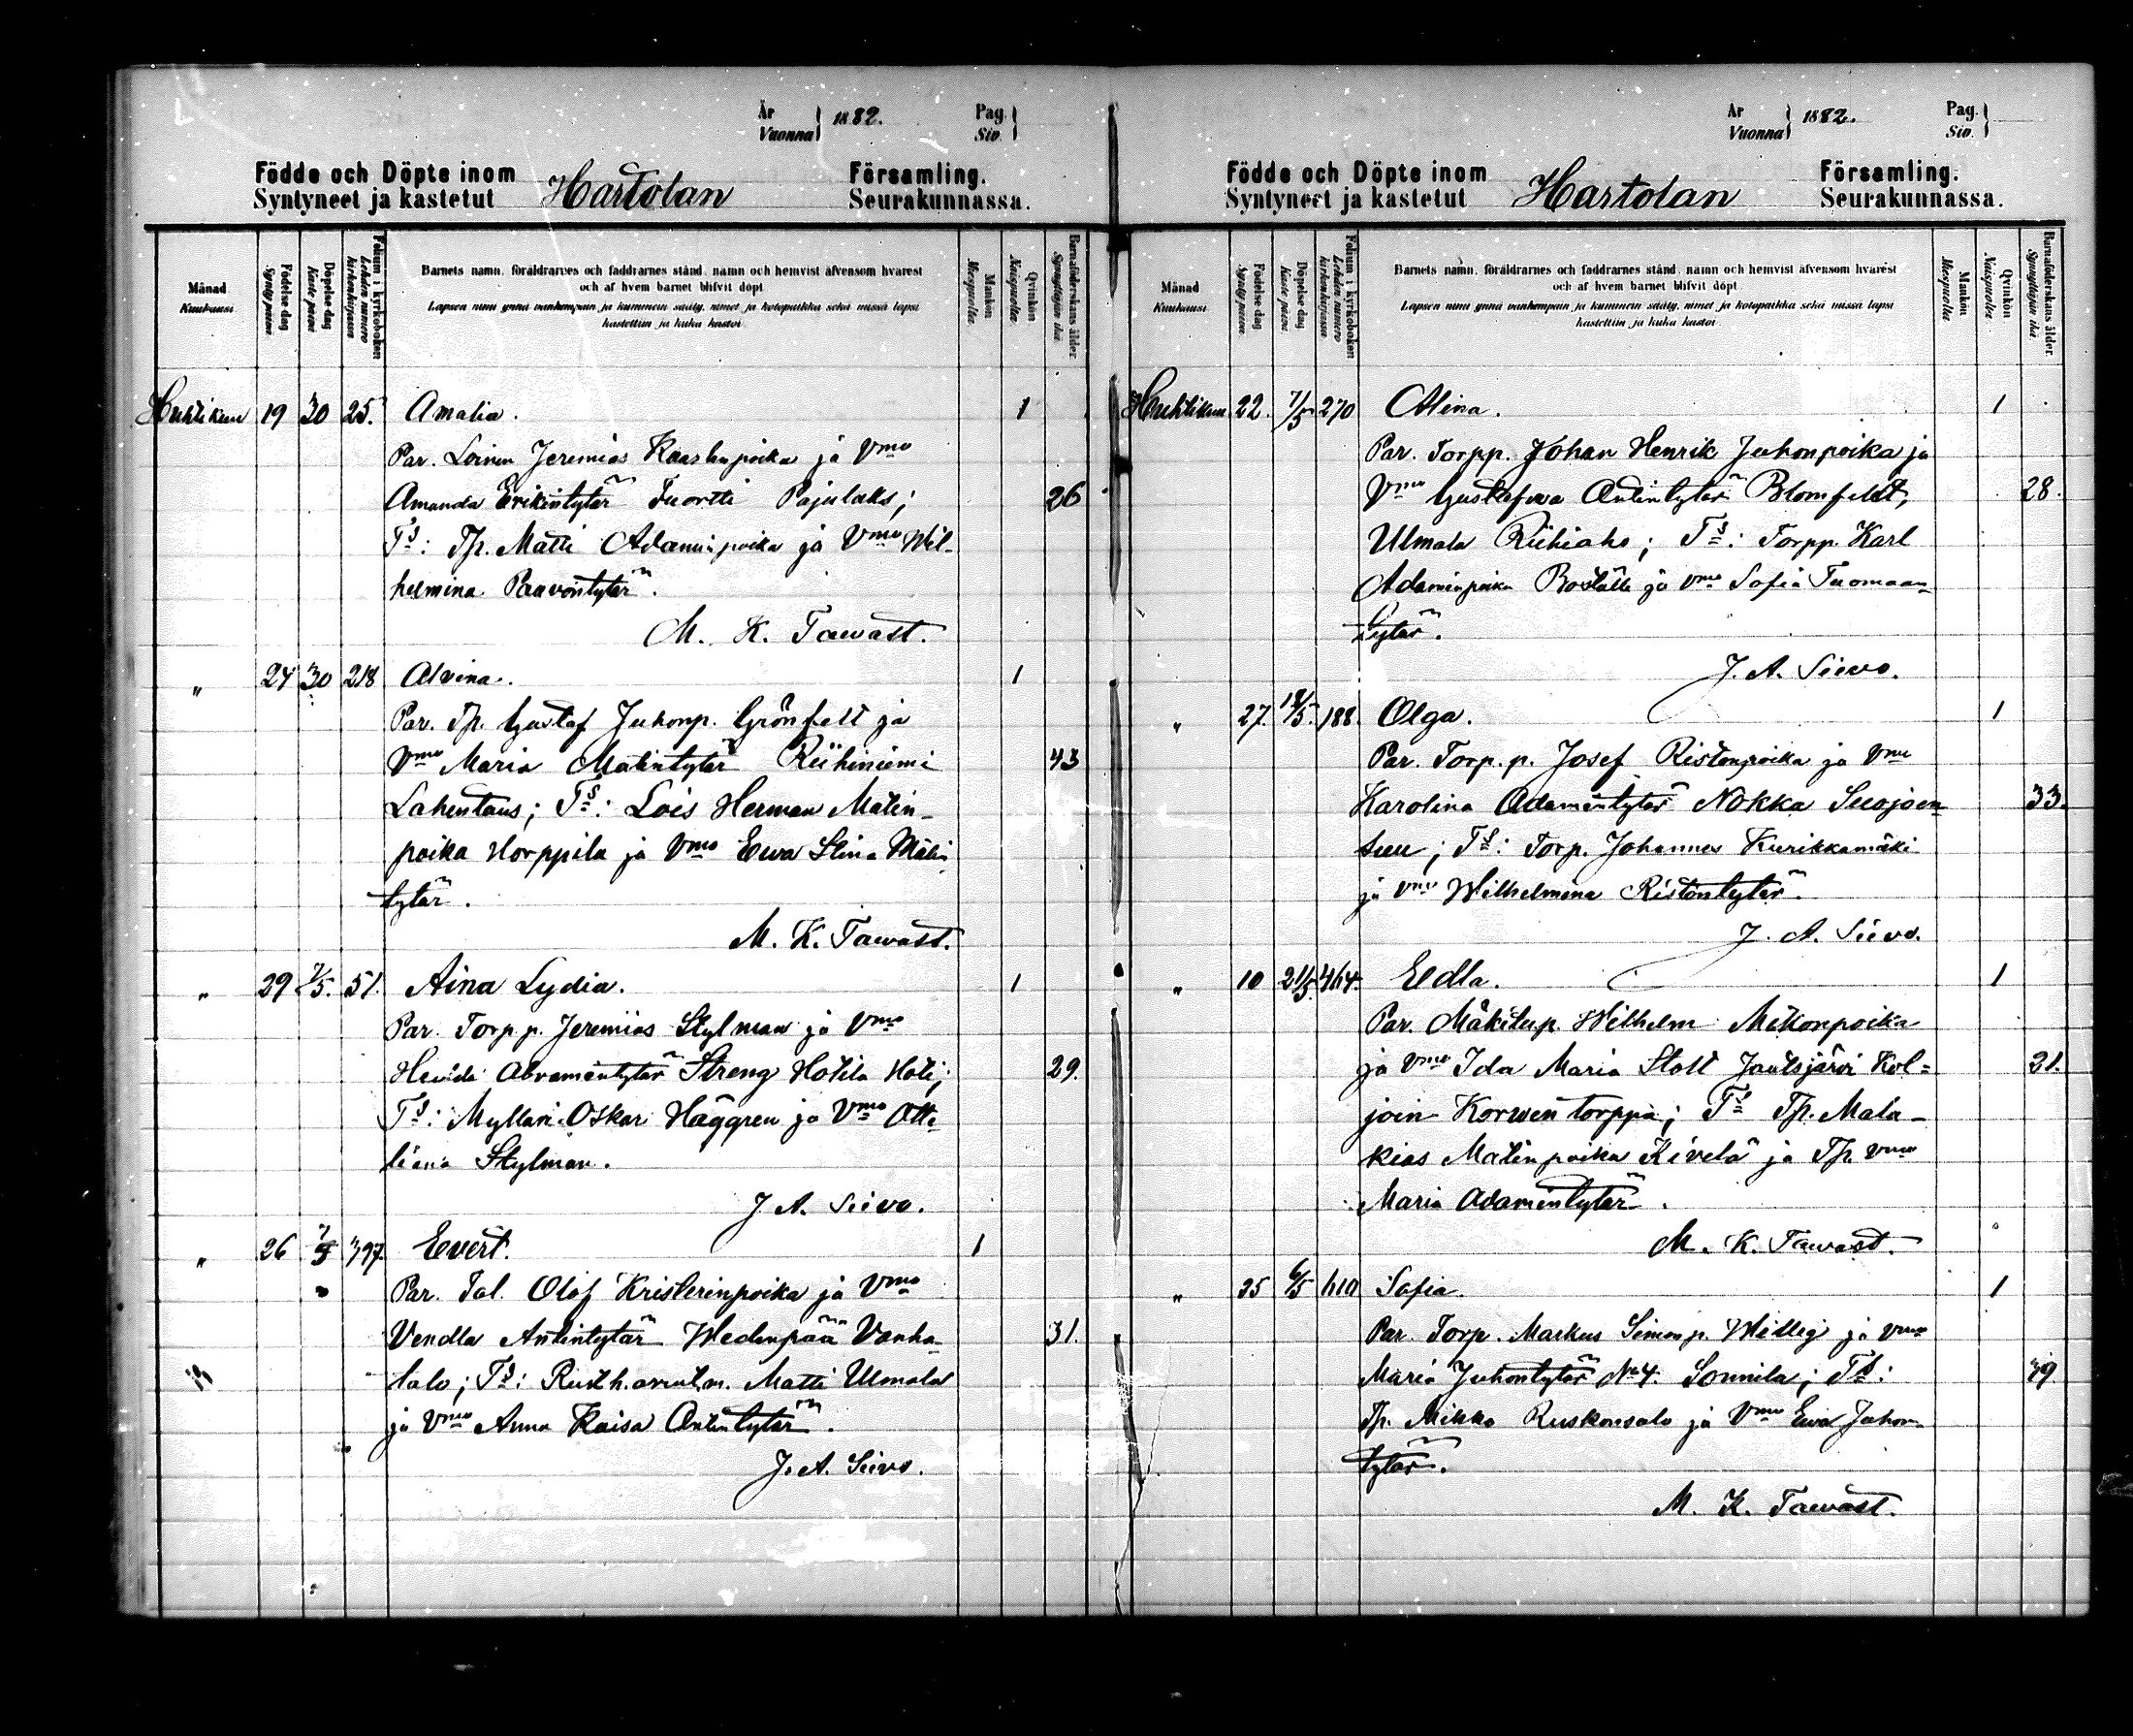 År
Vuonna } 1882.
Pag.
Siv. }
Födde och Döpte inom
Syntyneet ja kastetut
Hartolan
Församling.
Seurakunnassa.
Månad
Kuukausi
Födelse dag
Synty päivä
Döpelse dag
Kaste päivä
Folium i kyrkoboken
Lehden numero kirkonkirjassa
Barnets namn, föräldrarnes och faddrarnes stånd, namn och hemvist äfvensom hvarest
och af hvem barnet blifvit döpt
Lapsen nimi ynnä vanhempain ja kummein sääty, nimet ja kotopaikka sekä missä lapsi
kastettiin ja kuka kastoi
Mankön
Miespuolta
Qvinkön
Naispuolta
Barnaföderskans ålder.
Synnyttäjän ikä.
Huhtikuu 19 30 25. Amalia. 1
Par. Loinen Jeremias Kaaslenpoika ja Vmo
Amanda Erikintytär Tuortti Pajulaks; 26
Ts: Tp. Matti Adaminpoika ja Vmo Wil-
helmina Paavontytär.
M. K. Tawast.
" 24 30 218 Alvina. 1
Par. Tp. Gustaf Juhonp. Grönfelt ja
Vmo Maria Matintytär Riihiniemi 43
Lahentaus; Ts: Lois Herman Matin-
poika Horppila ja Vmo Ewa Stina Matin
tytär.
M. K. Tawast.
" 29 7/5. 51. Aina Lydia. 1
Par. Torpp. Jeremias Stylman ja Vmo
Abramintytär Streng Hotila Hoti; 29.
Ts: Mylläri Oskar Häggren ja Vmo Otti-
liana Stylman.
J. A. Siivo.
" 26 7/5 397. Evert. 1
Par. Tal. Olof Kristerinpoika ja Vmo
Vendla Antintytär Wedenpää Vanha- 31.
talo; Ts: Rusth. Matti Ulmala
ja Vmo Anna Kaisa Antintytär.
J. A. Siivo.
År
Vuonna } 1882.
Pag.
Siv. }
Födde och Döpte inom
Syntyneet ja kastetut
Hartolan
Församling.
Seurakunnassa.
Månad
Kuukausi
Födelse dag
Synty päivä
Döpelse dag
Kaste päivä
Folium i kyrkoboken
Lehden numero kirkonkirjassa
Barnets namn, föräldrarnes och faddrarnes stånd, namn och hemvist äfvensom hvarest
och af hvem barnet blifvit döpt
Lapsen nimi ynnä vanhempain ja kummein sääty, nimet ja kotopaikka sekä missä lapsi
kastettiin ja kuka kastoi
Mankön
Miespuolta
Qvinkön
Naispuolta
Barnaföderskans ålder.
Synnyttäjän ikä.
Huhtikuu 22. 7/5 270 Alina. 1
Par. Torpp. Johan Henrik Juhonpoika ja
Vmo Gustafwa Antintytär Blomfeldt, 28.
Ulmala Riihiaho; Ts: Torpp. Karl
Adaminpoika ja Vmo Sofia Tuomaan-
tytär.
J. A. Siivo.
" 27. 18/5. 188. Olga. 1
Par. Torp.p. Josef Ristonpoika ja Vmo
Karolina Adamintytär Nokka Suojoen- 33.
suu; Ts: Torp. Johannes Kurikkamäki
ja Vmo Wilhelmina Ristontytär.
J. A. Siivo.
" 10 21/5. 464. Eedla. 1
Par. Mäkitup. Wilhelm Mikonpoika
ja Vmo Ida Maria Stolt Jautsjärvi Kol= 21.
join Korwen torppa; Ts Tp. Mala-
kias Matinpoika Kivelä ja Tp. Vmo
Maria Adamintytär.
M. K. Tawast.
" 25 6/5 Sofia. 1
Par. Torp. Markus Simonp. Willig ja Vmo
Maria Juhontytär No 4. Sonnila; Ts: 39.
Tp. Mikko Ruskonsalo ja Vmo Ewa Juhon-
tytär.
M. K. Tawast.